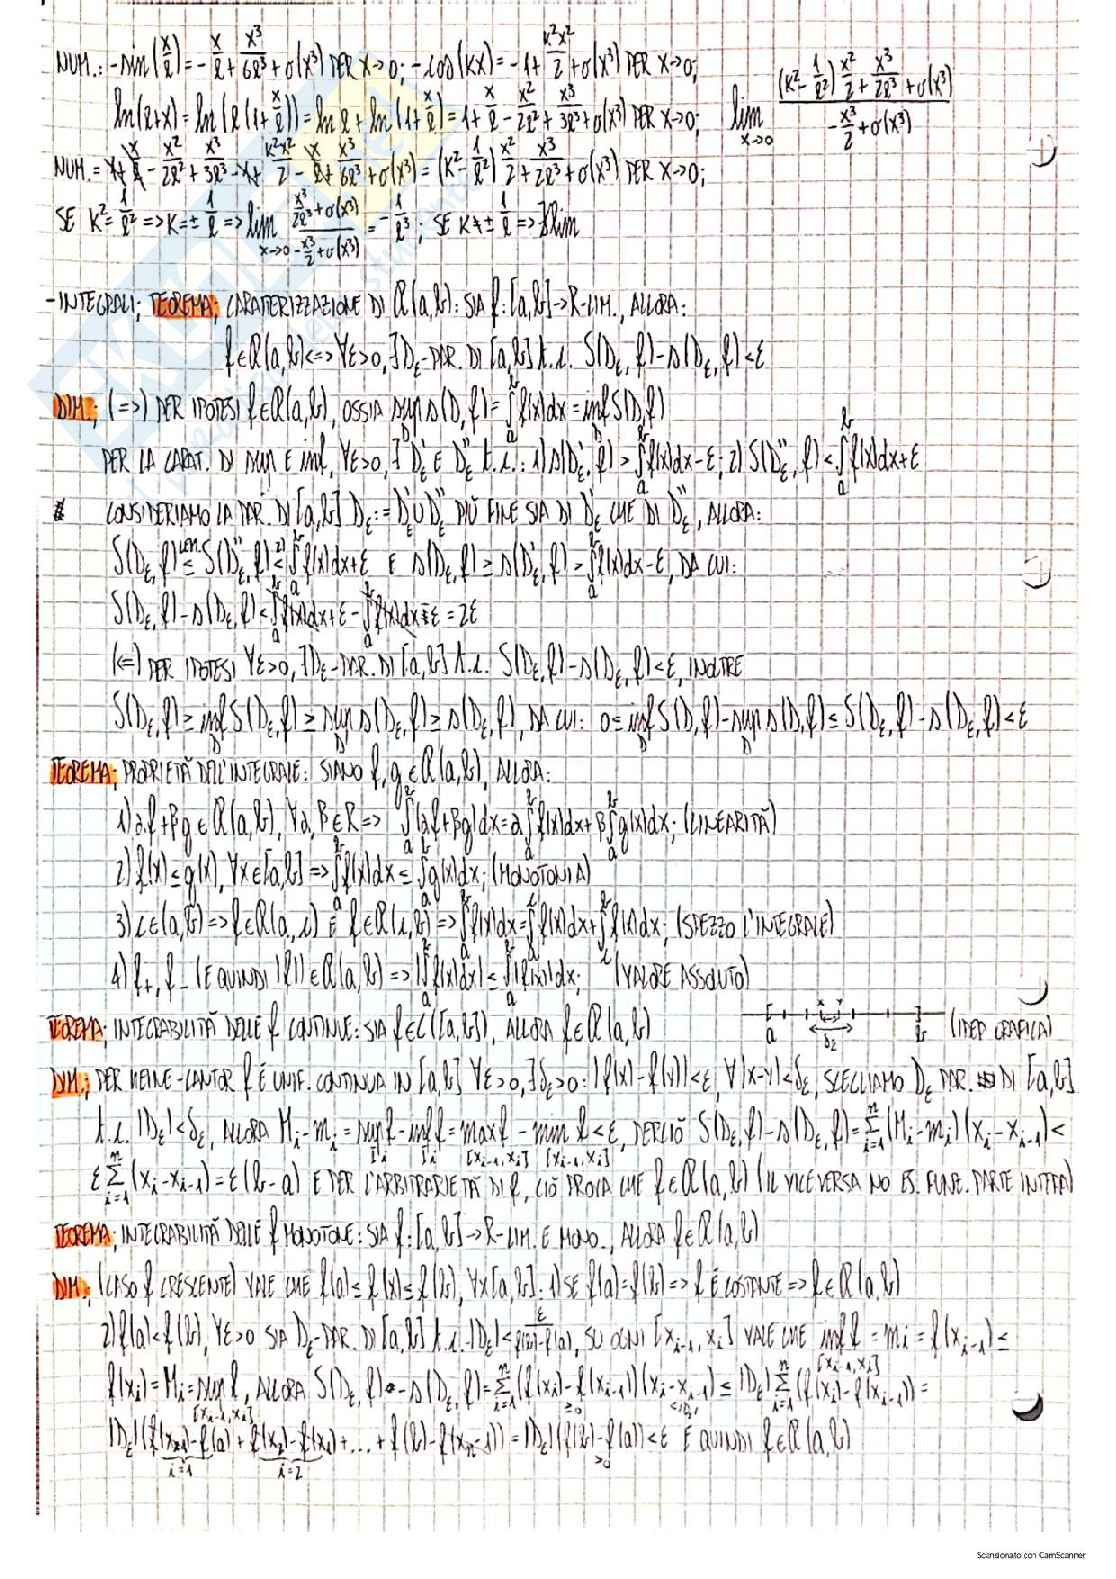 NUM.: -sin(x/ℓ) = -x/ℓ + x³/6ℓ³ + o(x³) PER x→0; -cos(kx) = -1 + k²x²/2 + o(x³) PER x→0;
ln(ℓ+x) = ln(ℓ(1+x/ℓ)) = ln ℓ + ln(1+x/ℓ) = 1 + x/ℓ - x²/2ℓ² + x³/3ℓ³ + o(x³) PER x→0; lim x→0 ((k²-1/ℓ²) x²/2 + x³/2ℓ³ + o(x³))/(-x³/2 + o(x³))
NUM. = 1 + x/ℓ - x²/2ℓ² + x³/3ℓ³ - 1 + k²x²/2 - x/ℓ + x³/6ℓ³ + o(x³) = (k²-1/ℓ²) x²/2 + x³/2ℓ³ + o(x³) PER x→0;
SE k² = 1/ℓ² => k = ± 1/ℓ => lim x→0 (x³/2ℓ³ + o(x³))/(-x³/2 + o(x³)) = -1/ℓ³; SE k ≠ ± 1/ℓ => ∄ lim
- INTEGRALI; TEOREMA; CARATTERIZZAZIONE DI R(a,b): SIA f: [a,b]→R-LIM., ALLORA:
f∈R(a,b) <=> ∀ε>0, ∃Dε-PAR. DI [a,b] t.c. S(Dε,f) - s(Dε,f) < ε
DIM.; (=>) PER IPOTESI f∈R(a,b), OSSIA sup_D s(D,f) = ∫ₐᵇ f(x)dx = inf_D S(D,f)
PER LA CARAT. DI sup E inf, ∀ε>0, ∃ D'ε E D''ε t.c.: 1) s(D'ε,f) > ∫ₐᵇ f(x)dx - ε; 2) S(D''ε,f) < ∫ₐᵇ f(x)dx + ε
CONSIDERIAMO LA PAR. DI [a,b] Dε := D'ε ∪ D''ε PIÙ FINE SIA DI D'ε CHE DI D''ε, ALLORA:
S(Dε,f) ≤ S(D''ε,f) < ∫ₐᵇ f(x)dx + ε E s(Dε,f) ≥ s(D'ε,f) > ∫ₐᵇ f(x)dx - ε, DA CUI:
S(Dε,f) - s(Dε,f) < ∫ₐᵇ f(x)dx + ε - ∫ₐᵇ f(x)dx + ε = 2ε
(<=) PER IPOTESI ∀ε>0, ∃Dε-PAR. DI [a,b] t.c. S(Dε,f) - s(Dε,f) < ε, INOLTRE
S(Dε,f) ≥ inf_D S(Dε,f) ≥ sup_D s(Dε,f) ≥ s(Dε,f), DA CUI: 0 ≤ inf_D S(D,f) - sup_D s(D,f) ≤ S(Dε,f) - s(Dε,f) < ε
TEOREMA; PROPRIETÀ DELL'INTEGRALE: SIANO f,g∈R(a,b), ALLORA:
1) αf+βg∈R(a,b), ∀α,β∈R => ∫ₐᵇ (αf+βg)dx = α∫ₐᵇ f(x)dx + β∫ₐᵇ g(x)dx; (LINEARITÀ)
2) f(x) ≤ g(x), ∀x∈[a,b] => ∫ₐᵇ f(x)dx ≤ ∫ₐᵇ g(x)dx; (MONOTONIA)
3) c∈(a,b) => f∈R(a,c) E f∈R(c,b) => ∫ₐᵇ f(x)dx = ∫ₐᶜ f(x)dx + ∫ f(x)dx; (SPEZZO L'INTEGRALE)
4) f₊, f₋ (E QUINDI |f|) ∈R(a,b) => |∫ₐᵇ f(x)dx| ≤ ∫ₐᵇ |f(x)|dx; (VALORE ASSOLUTO)
TEOREMA; INTEGRABILITÀ DELLE f CONTINUE: SIA f∈C([a,b]), ALLORA f∈R(a,b) a x y δε b (IDEA GRAFICA)
DIM.; PER HEINE-CANTOR f È UNIF. CONTINUA IN [a,b] ∀ε>0, ∃δε>0: |f(x)-f(y)|<ε, ∀|x-y|<δε, SCEGLIAMO Dε PAR. DI [a,b]
t.c. |Dε|<δε, ALLORA Mi-mi = sup_Ii f - inf_Ii f = max_[xi-1,xi] f - min_[xi-1,xi] f < ε, PERCIÒ S(Dε,f) - s(Dε,f) = Σⁿᵢ₌₁ (Mi-mi)(xi-xi-1) <
ε Σⁿᵢ₌₁ (xi-xi-1) = ε(b-a) E PER L'ARBITRARIETÀ DI f, CIÒ PROVA CHE f∈R(a,b) (IL VICEVERSA NO ES. FUNZ. PARTE INTERA)
TEOREMA; INTEGRABILITÀ DELLE f MONOTONE: SIA f: [a,b]→R-LIM. E MONO., ALLORA f∈R(a,b)
DIM.; (CASO f CRESCENTE) VALE CHE f(a) ≤ f(x) ≤ f(b), ∀x∈[a,b]. 1) SE f(a)=f(b) => f È COSTANTE => f∈R(a,b)
2) f(a)<f(b), ∀ε>0 SIA Dε-PAR. DI [a,b] t.c. |Dε| < ε/(f(b)-f(a)), SU OGNI [xi-1, xi] VALE CHE inf_[xi-1,xi] f = mi = f(xi-1) ≤
f(xi) = Mi = sup_[xi-1,xi] f, ALLORA S(Dε,f) - s(Dε,f) = Σⁿᵢ₌₁ (f(xi)-f(xi-1))(xi-xi-1) ≤ |Dε| Σⁿᵢ₌₁ (f(xi)-f(xi-1)) =
|Dε|(f(x1)-f(a) + f(x2)-f(x1) + ... + f(b)-f(xn-1)) = |Dε|(f(b)-f(a)) < ε E QUINDI f∈R(a,b)
i=1 i=2 >0
Scansionato con CamScanner